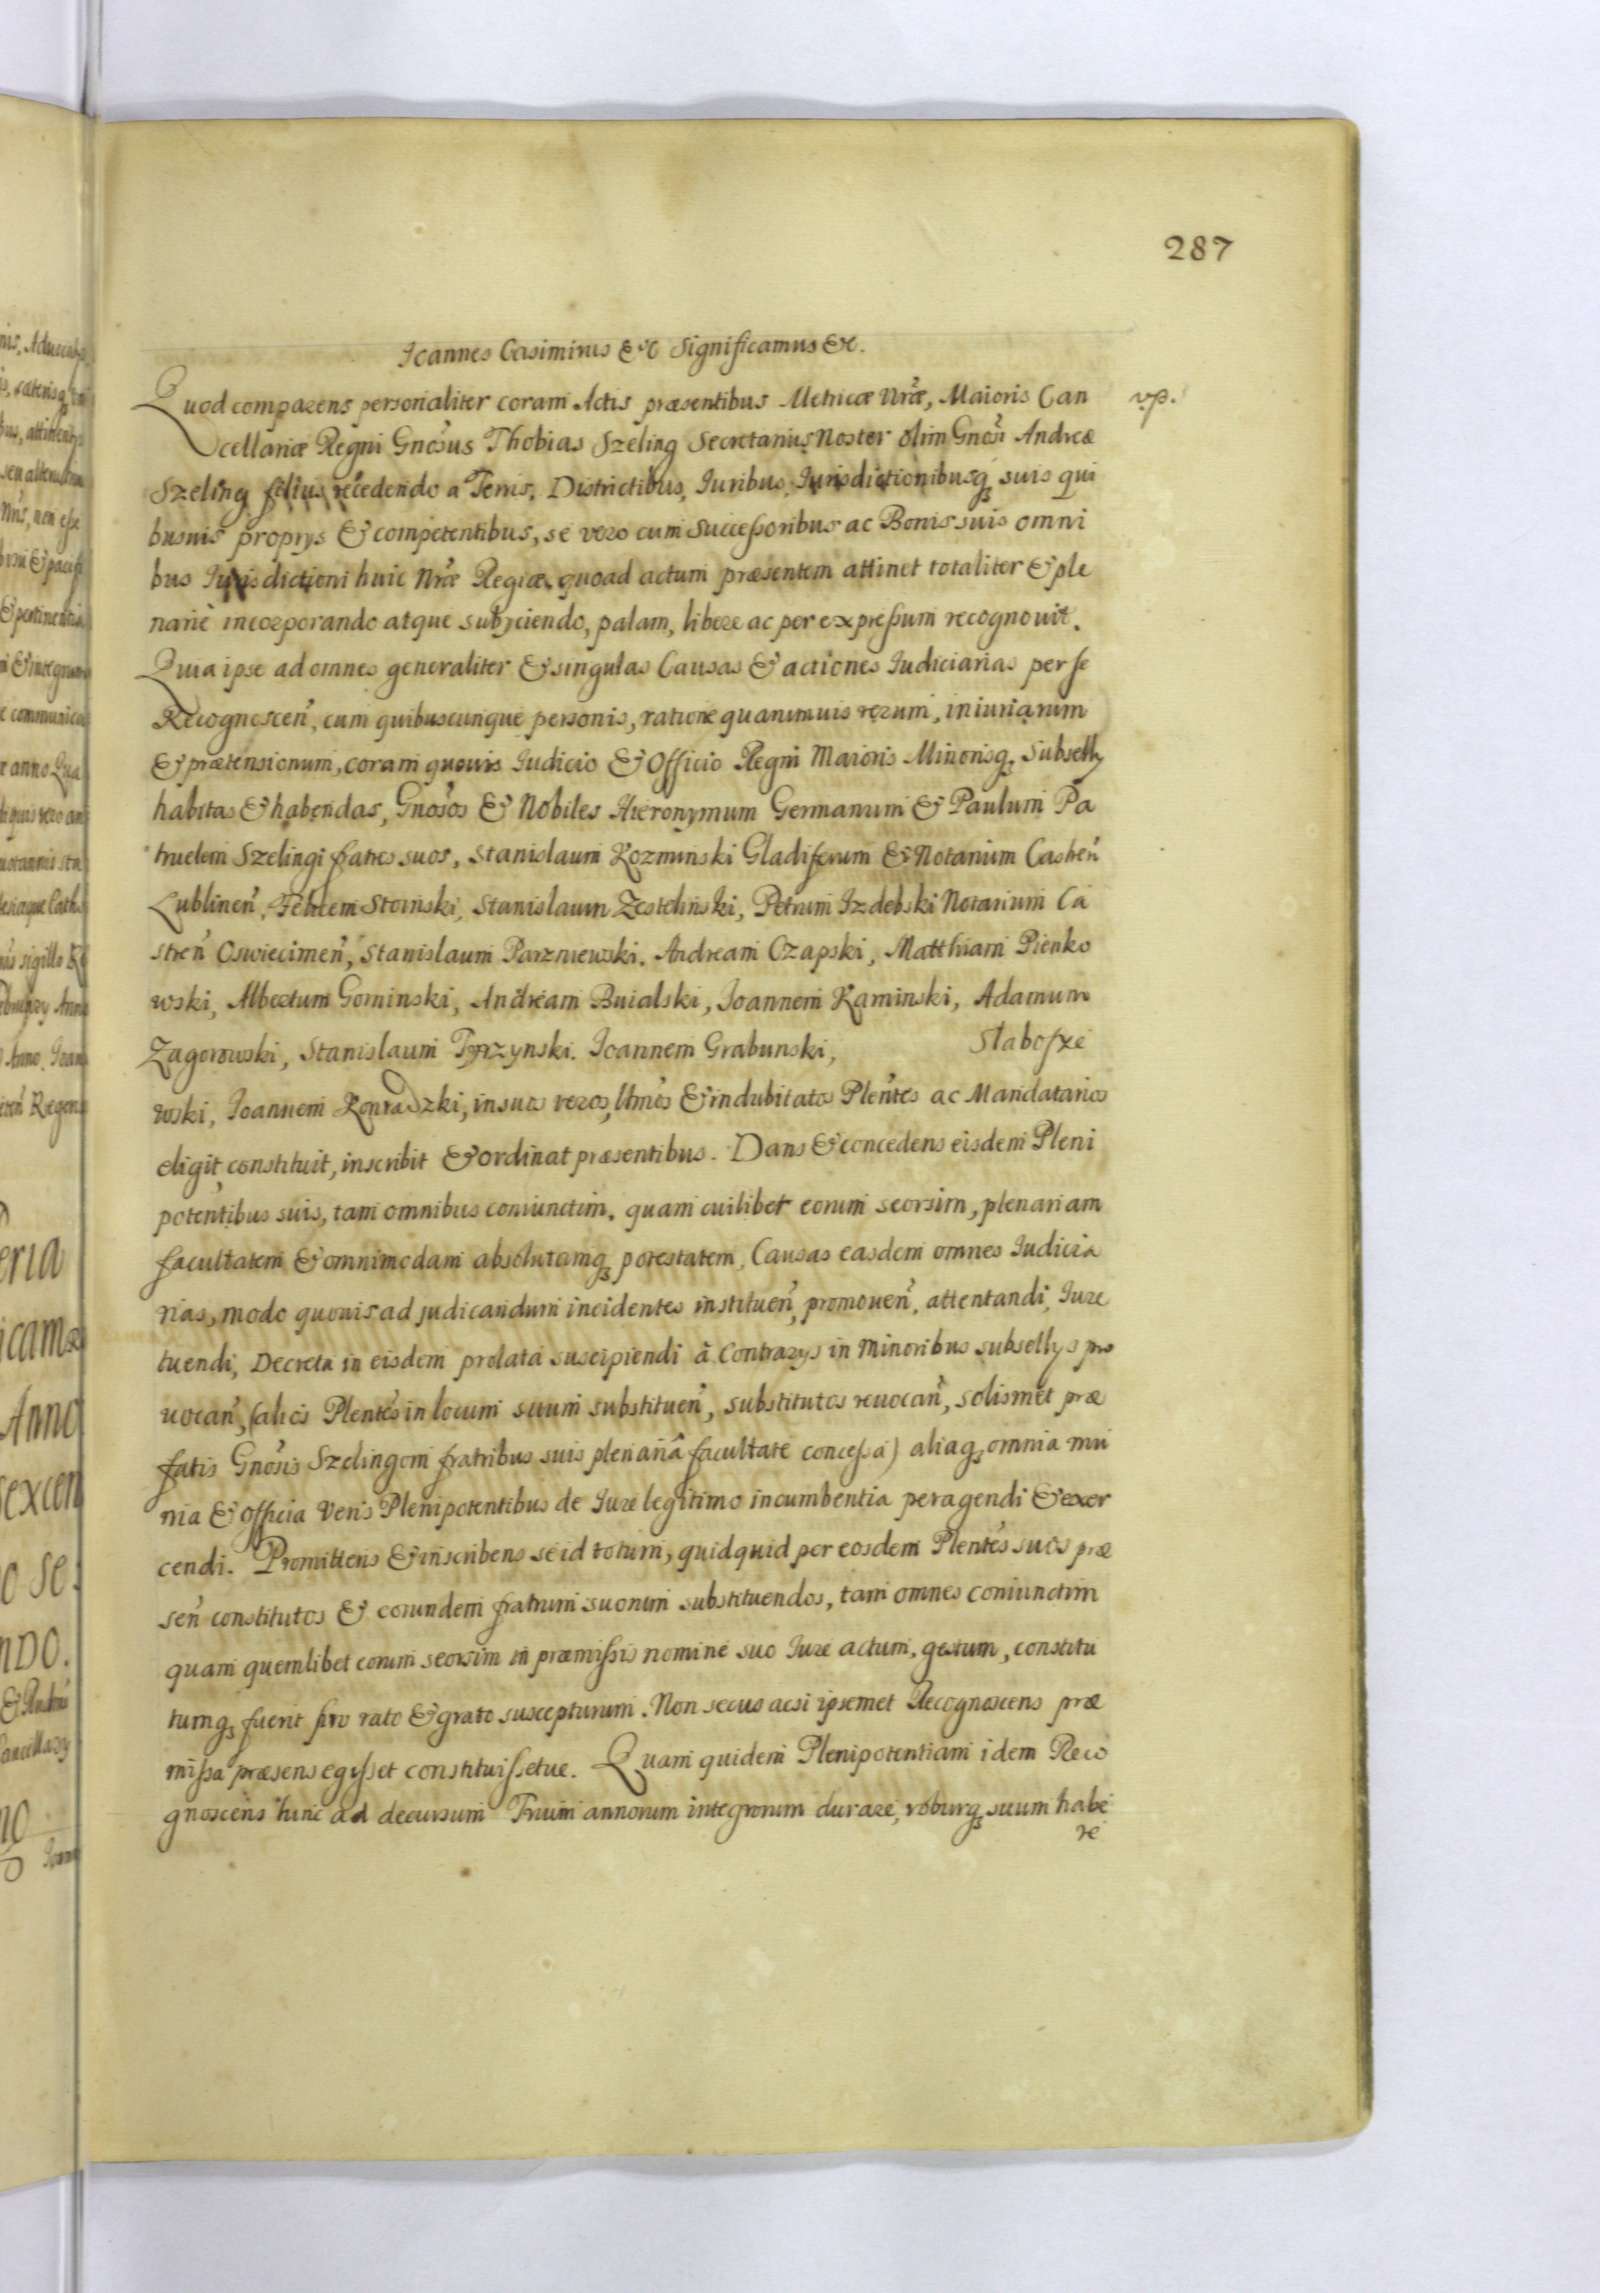 287
Ioannes Casimirus &c Significamus &c.
Quod comparens personaliter coram Actis præsentibus Metricæ Nr̃æ, Maioris Can
vp.
cellariæ Regni Gnõsus Thobias Szeling Secretarius Noster olim Gnõsi Andreæ
Szeling filius, recedendo a Terris, Districtibus, Iuribus, Iurisdictionibusq3 suis qui
busuis proprys & competentibus, se vero cum Successoribus ac Bonis suis omni
bus Iurisdictioni huic Nr̃æ Regiæ, quoad actum præsentem attinet totaliter & ple
nariè incorporando atque subyciendo, palam, libere ac per expressum recognouit.
Quia ipse ad omnes generaliter & singulas Causas & actiones Iudiciarias per se
Recognoscen̄, cum quibuscunque personis, ratione quarumuis rerum, iniuriarum
& prætensionum, coram quouis Iudicio & Officio Regni Maioris Minorisq3 Subselly
habitas & habendas, Gnõsos & Nobiles Hieronymum Germanum & Paulum Pa
truelem Szelingi fratres suos, Stanislaum Kozminski Gladiferum & Notarium Castren̄
Lublinen̄, Felicem Stoinski, Stanislaum Zestelinski, Petrum Izdebski Notarium Ca
stren̄ Oswiecimen̄, Stanislaum Parzniewski, Andream Czapski, Matthiam Pienko
wski, Albertum Gominski, Andream Buialski, Ioannem Kaminski, Adamum
Zagorowski, Stanislaum Tyrzynski. Ioannem Grabunski, Slabosze
wski, Ioannem Konradzki, in suos veros, l̃tmos & indubitatos Plen̄tes ac Mandatarios
eligit, constituit, inscribit & ordinat præsentibus. Dans & concedens eisdem Pleni
poten̄tibus suis, tam omnibus coniunctim, quam cuilibet eorum seorsim, plenariam
facultatem & omnimodam absolutamq3 potestatem, Causas easdem omnes Iudicia
rias, modo quouis ad judicandum incidentes instituen̄, promouen̄, attentandi, Iure
tuendi, Decreta in eisdem prolata suscipiendi à Contrarys in Minoribus subsellys pro
uocan̄, (alios Plen̄tes in locum suum substituen̄, substitutos reuocan̄, solismet præ
fatis Gnõsis Szelingom fratribus suis plenariâ facultate concessa) aliaq3 omnia mu
nia & officia veris Plenipotentibus de Iure legitimo incumbentia peragendi & exer
cendi. Promittens & inscribens se id totum, quidquid per eosdem Plen̄tes suos præ
sen̄ constitutos & eorundem fratrum suorum substituendos, tam omnes coniunctim
quam quemlibet eorum seorsim in præmissis nomine suo Iure actum, gestum, constitu
tumq3 fuerit pro rato & grato suscepturum. Non secus acsi ipsemet Recognoscens præ
missa præsens egisset constituissetue. Quam quidem Plenipotentiam idem Reco
gnoscens hinc ad decursum Trium annorum integrorum durare, roburq3 suum habe
re